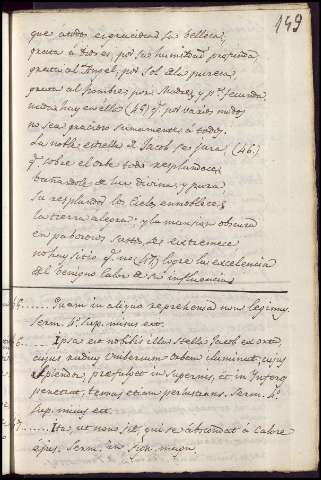 149
que á todos es graciosa su belleza,
grata á Dios es, por su humildad profunda,
grata al Angel, por Sol de la pureza,
grata al hombre por Madre, y
nada hay en ella (45) q.e por varios modos
no sea gracioso sumamente á todos.
La noble estrella de Jacob es pura (46)
q.e sobre el orbe todo resplandece;
bañandole de luz divina, y pura
su resplandor los Cielos ennoblece;
la tierra alegra: y la mansion obscura
en pavoroso susto se extremece
no hay sitio q.e no (47) logre la excelencia
del benigno calor de su influencia
45...... Quam in aliquo reprehensa non legimus.
Serm. D.e Sup. missus est.
46...... Ipsa est nobilis illa stella Jacob ex orta,
cujus radius Universum Orbem illuminat, cujus
splendor, præfulget in Supernis, et in Inferos
penetrat, terras etiam perlustrans. Serm. D.e
Sup. missus est.
47...... Ita ut non sit, qui se abscondat á Calore
ejus. Serm. in Sign. magn.